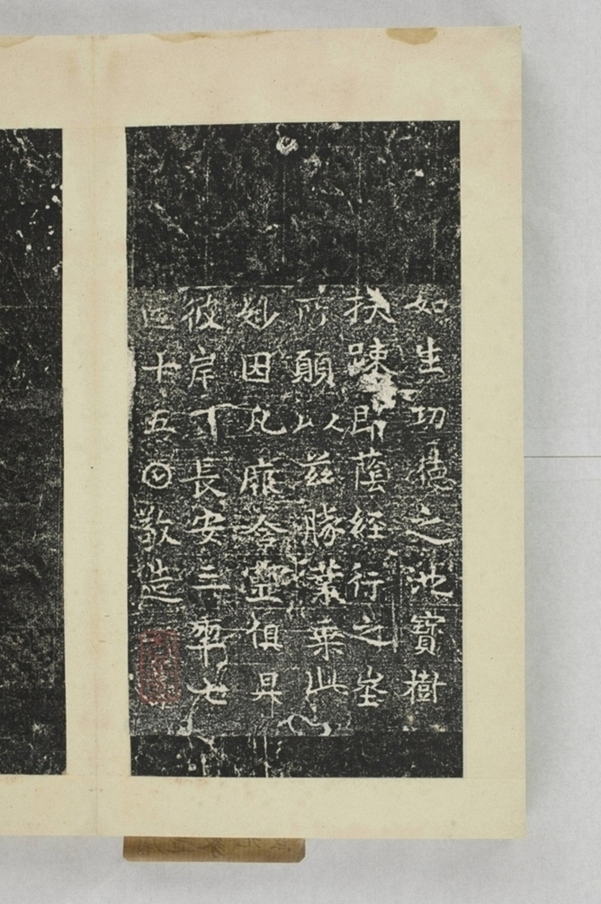 如生功德之池寶樹
扶踈即蔭經行之埊
所願以茲勝業乘此
妙因凡厥含靈俱昇
彼岸長安三𠡦七
十五𡆠敬造